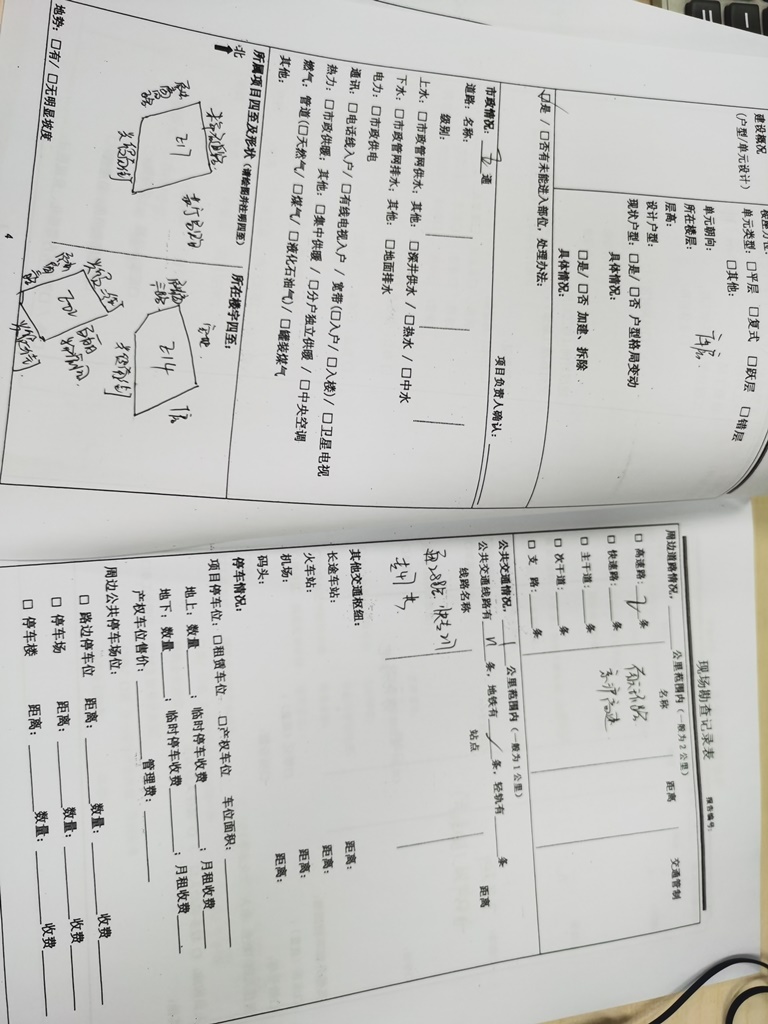 建设概况
(户型/单元设计)
单元类型：□平层 □复式 □跃层 □错层
□其他：
单元朝向：
所在楼层：
层高：
设计户型：
现状户型：□是/□否 户型格局变动
具体情况：
□是/□否 加建、拆除
具体情况：
□是/□否有未能进入部位，处理办法：
项目负责人确认：
市政情况： 七 通
道路：名称：
级别：
上水：□市政管网供水；其他：□深井供水 / □热水 / □中水
下水：□市政管网排水；其他：□地面排水
电力：□市政供电
通讯：□电话线入户/ □有线电视入户 / 宽带(□入户/ □入楼)/ □卫星电视
热力：□市政供暖；其他：□集中供暖 / □分户独立供暖 / □中央空调
燃气：管道(□天然气/ □煤气/ □液化石油气)/ □罐装煤气
其他：
所属项目四至及形状（请绘图并注明四至）
北
217
所在楼宇四至：
214
地势：□有/□无明显坡度
4
现场勘查记录表
报告编号：
周边道路情况，____公里范围内（一般为2公里）
名称 距离 交通管制
□ 高速路： 2 条
□ 快速路：____条
□ 主干道：____条
□ 次干道：____条
□ 支 路：____条
公共交通情况， 1 公里范围内（一般为1公里）
公共交通线路有____条，地铁有____条，轻轨有____条
线路名称 站点 距离
其他交通枢纽：
长途车站： 距离：
火车站： 距离：
机场： 距离：
码头： 距离：
停车情况：
项目停车位：□租赁车位 □产权车位 车位面积：____
地上：数量____；临时停车收费____；月租收费____
地下：数量____；临时停车收费____；月租收费____
产权车位售价：____管理费：____
周边公共停车场位：
□ 路边停车位 距离：____数量：____收费____
□ 停车场 距离：____数量：____收费____
□ 停车楼 距离：____数量：____收费____